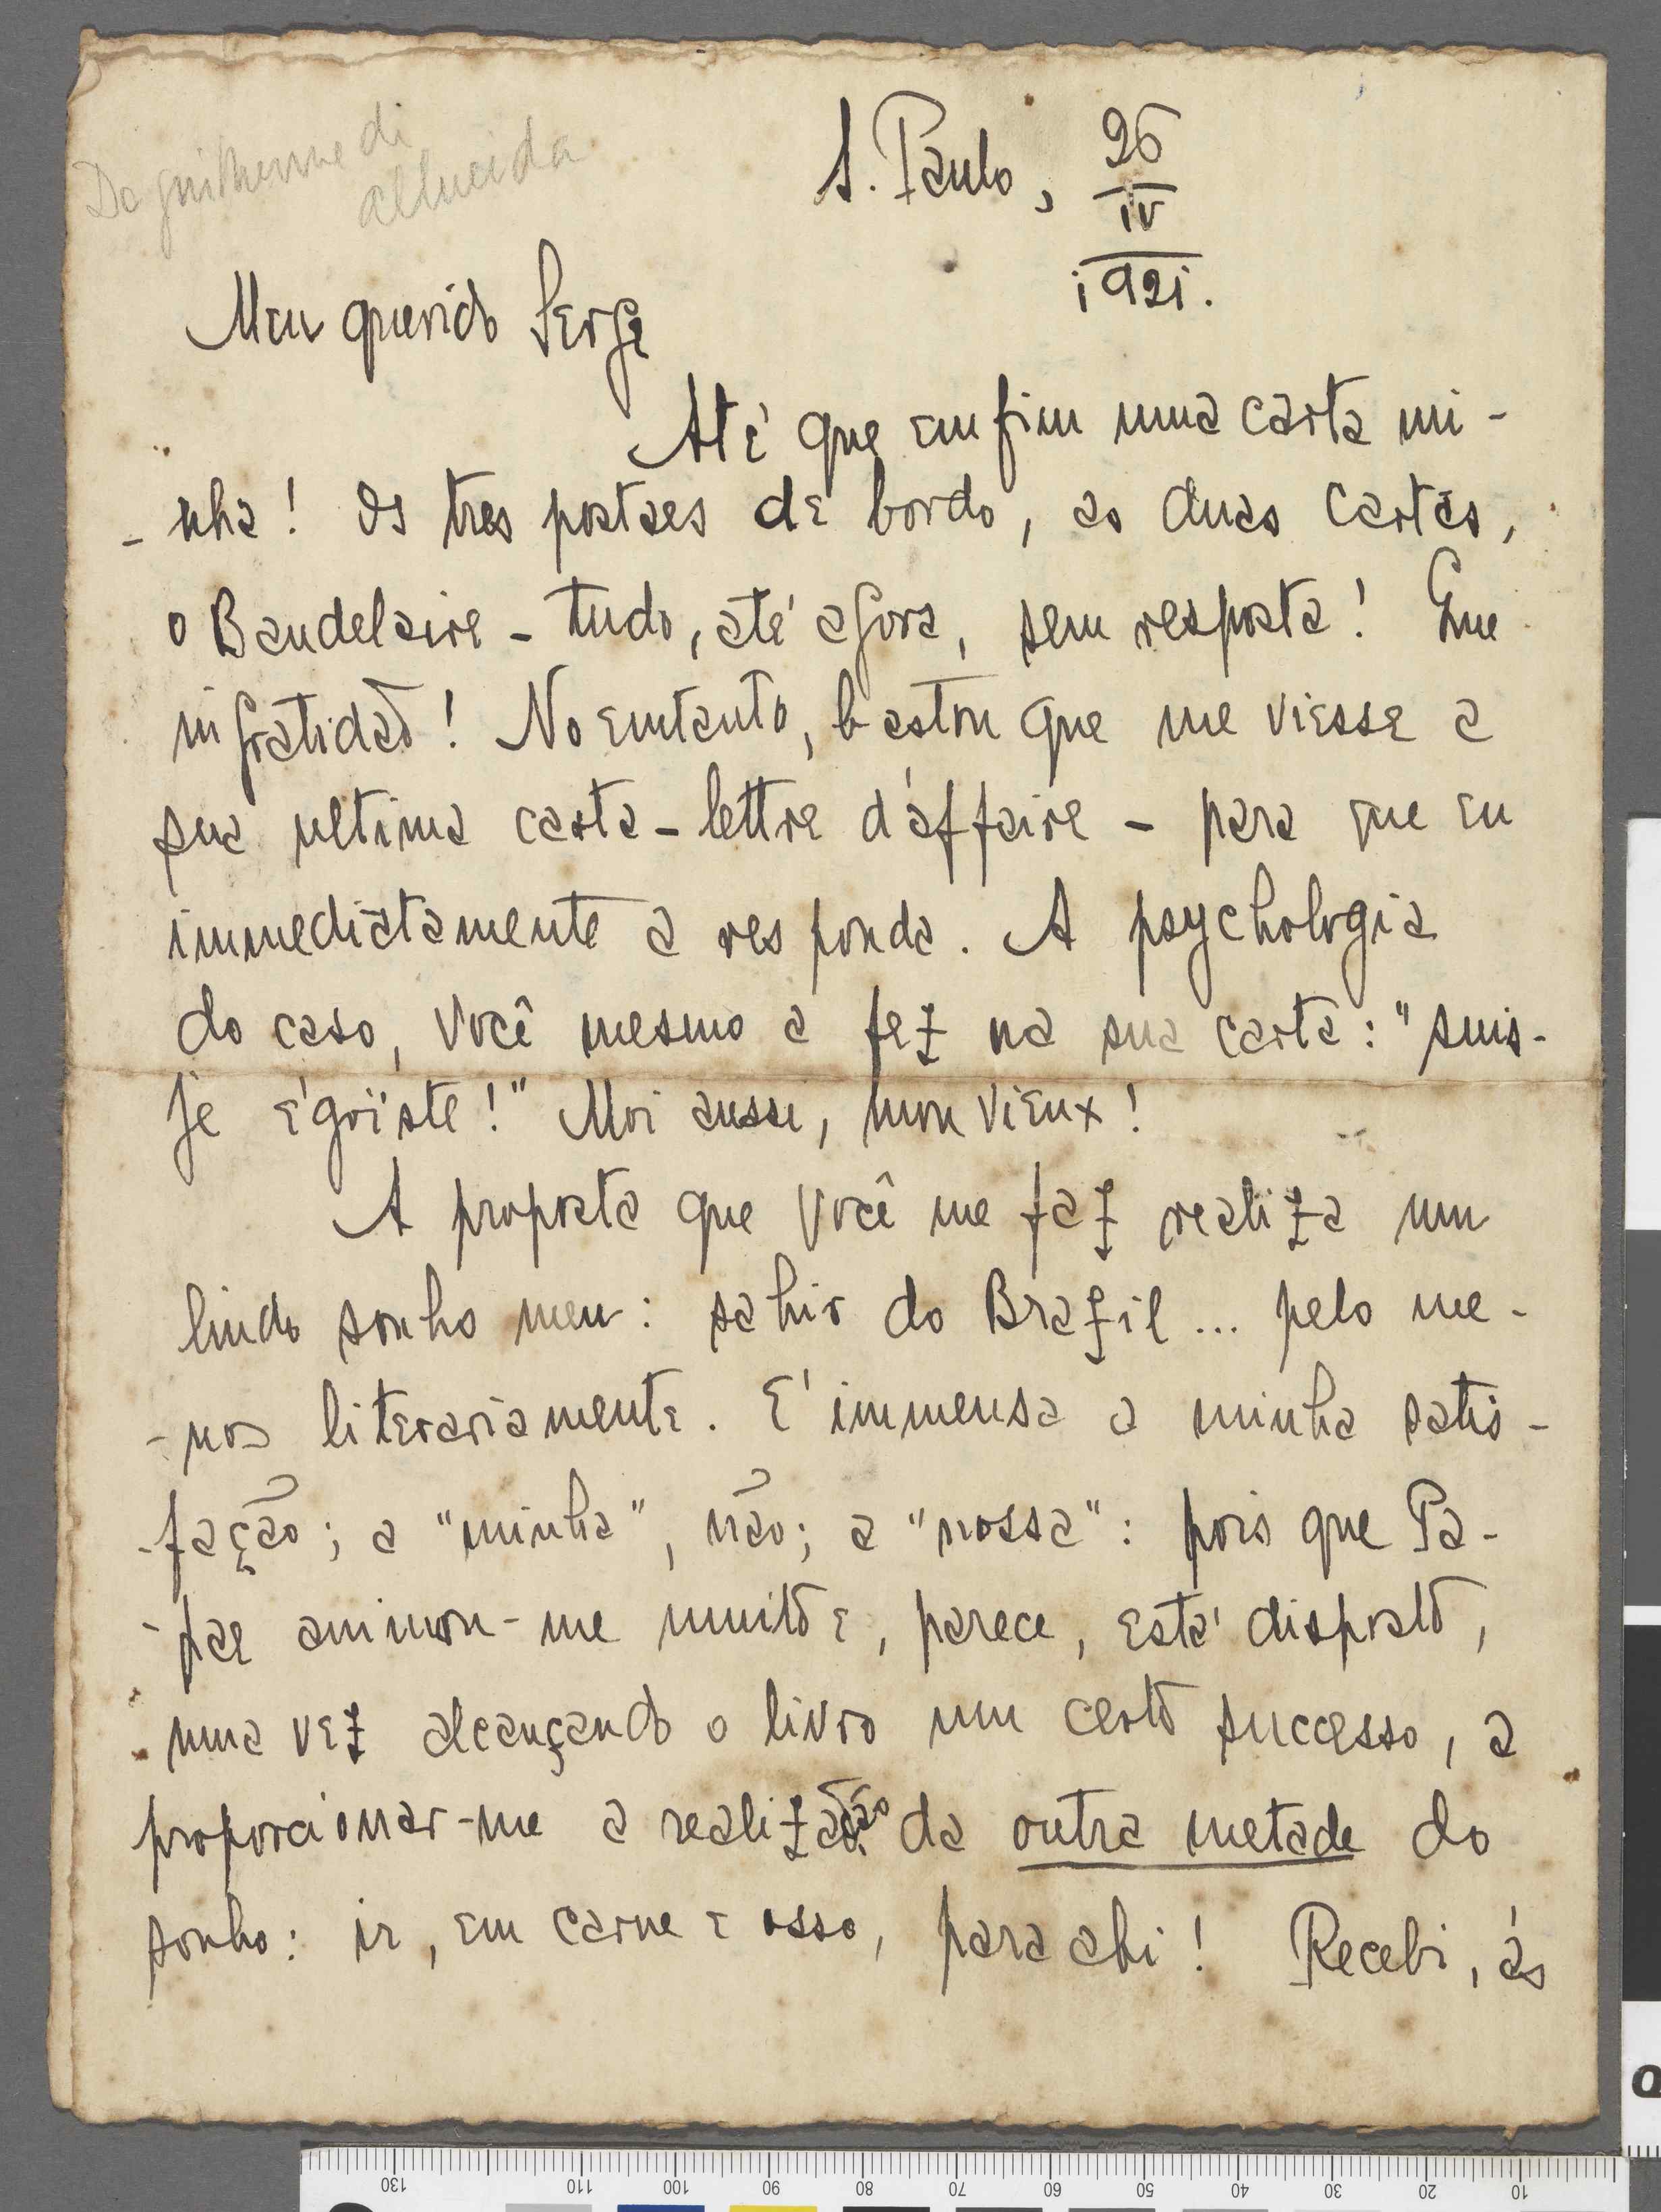 De Guilherme di
Allmeida
S. Paulo, 26
IV
1921.
Meu querido Serge
Até que emfim uma carta mi-
-nha! Os tres postaes de bordo, as duas cartas,
o Baudelaire - tudo, até agora, sem resposta! Que
ingratidão! No emtanto, bastou que me viesse a
sua ultima carta - lettre d'affaire - para que eu
immediatamente a responda. A psychologia
do caso, você mesmo a fez na sua carta: "suis-
je égoïste!" Moi aussi, mon vieux!
A proposta que você me faz realiza um
lindo sonho meu: sahir do Brazil... pelo me-
-nos literariamente. E' immensa a minha satis-
-fação; a "minha", não; a "nossa": pois que Pa-
-pae animou-me muito e, parece, está disposto,
uma vez alcançando o livro um certo successo, a
proporcionar-me a realização da outra metade do
sonho: ir, em carne e osso, para ahi! Recebi, ás
130 110 100 90 80 70 60 50 40 30 20 10